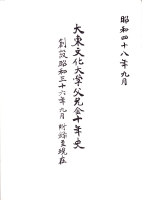 昭和四十八年九月
大東文化大学父兄会十年史
創設昭和三十六年九月
現在